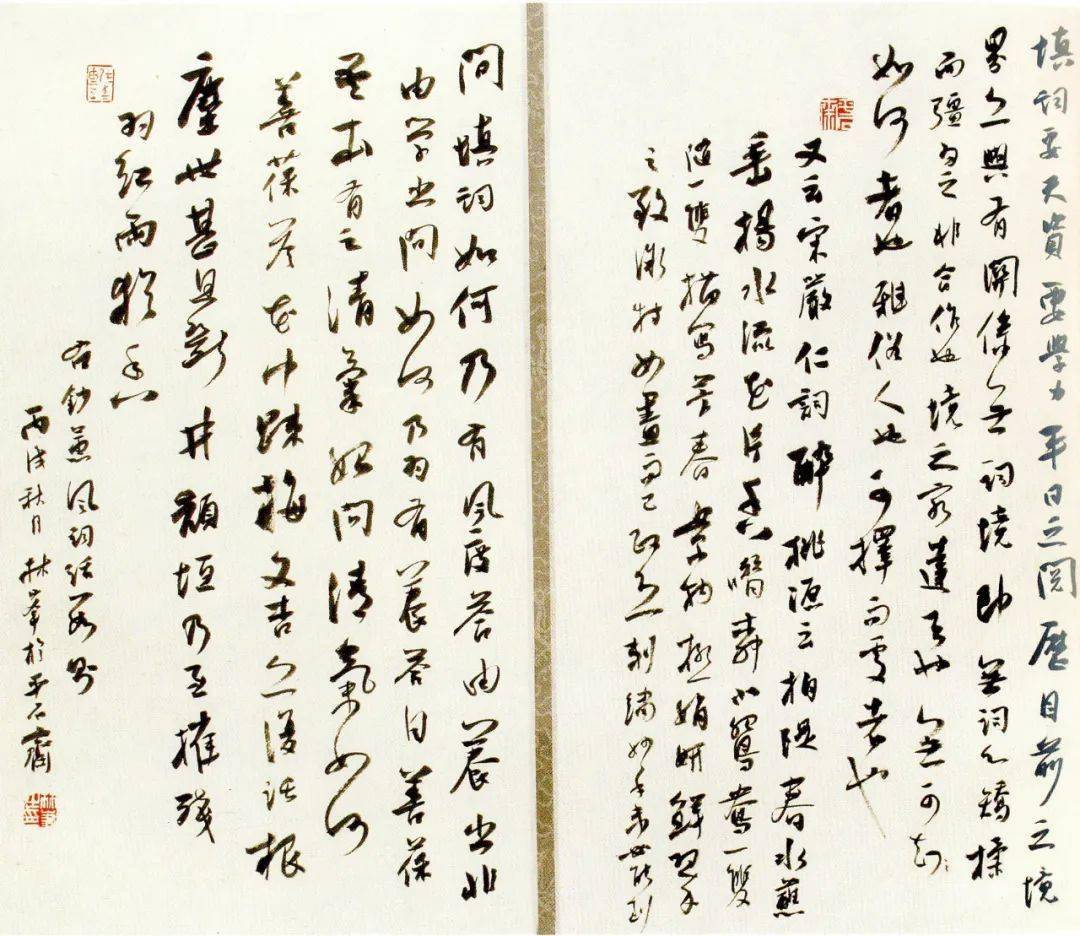 填詞要天資要學力平日之閱歷目前之境
界亦與有關係無詞境即無詞心矯揉
而彊為之非合作也境之窮達天也無可
如何者也雅俗人也可擇而處者也
又云宋嚴仁詞醉桃源云拍隄春水蘸
垂楊水流花片香噆小鴛鴦一雙
隨一雙描寫芳春景物極娟妍鮮翠
之致微特如畫而已政恐刺繡妙手未必能到
問填詞如何乃有風度答由養出非
由學出問如何乃為有養答曰善葆
吾本有之清氣始問清氣如何
善葆答花中疎梅文杏亦復託根
塵世甚且斷井頹垣乃至摧殘
為紅雨猶香
右鈔蕙風詞話兩則
丙戌秋月林峯於平石齋